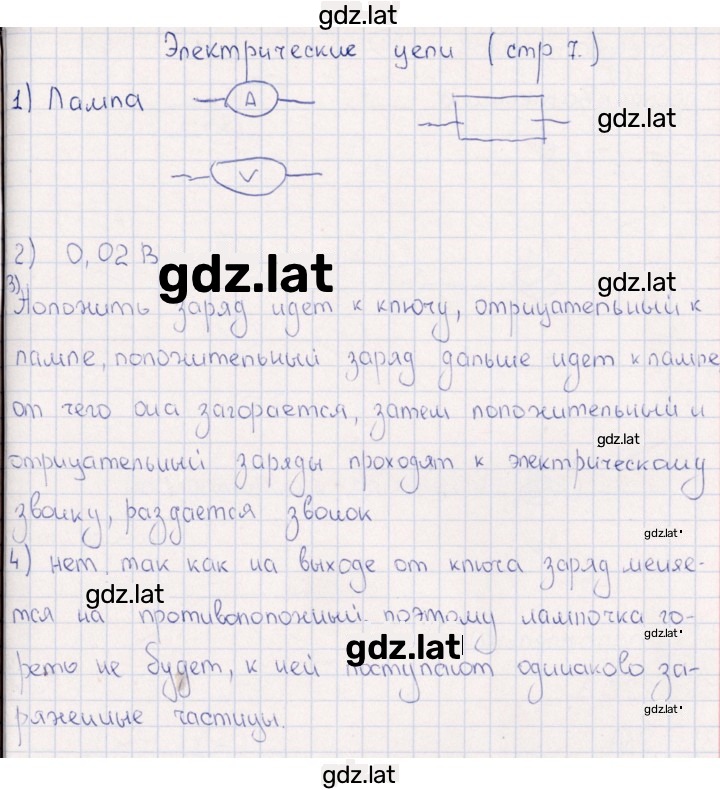 gdz.lat
Электрические цепи (стр 7.)
1) Лампа
A
gdz.lat
V
2) 0,02 В
gdz.lat
gdz.lat
3)
Положить заряд идет к ключу, отрицательный к
лампе, положительный заряд дальше идет к лампе,
от чего она загорается, затем положительный и
gdz.lat
отрицательный заряды проходят к электрическому
звонку, раздается звонок
gdz.lat
4) нет. так как на выходе от ключа заряд меняе-
gdz.lat
тся на противоположный. поэтому лампочка го-
gdz.lat
gdz.lat
реть не будет, к ней поступают одинаково за-
gdz.lat
ряженные частицы.
gdz.lat